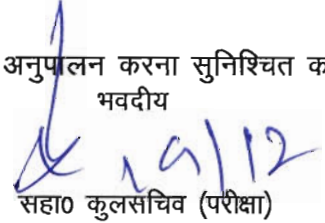 अनुपालन करना सुनिश्चित क
भवदीय
19/12
सहा0 कुलसचिव (परीक्षा)